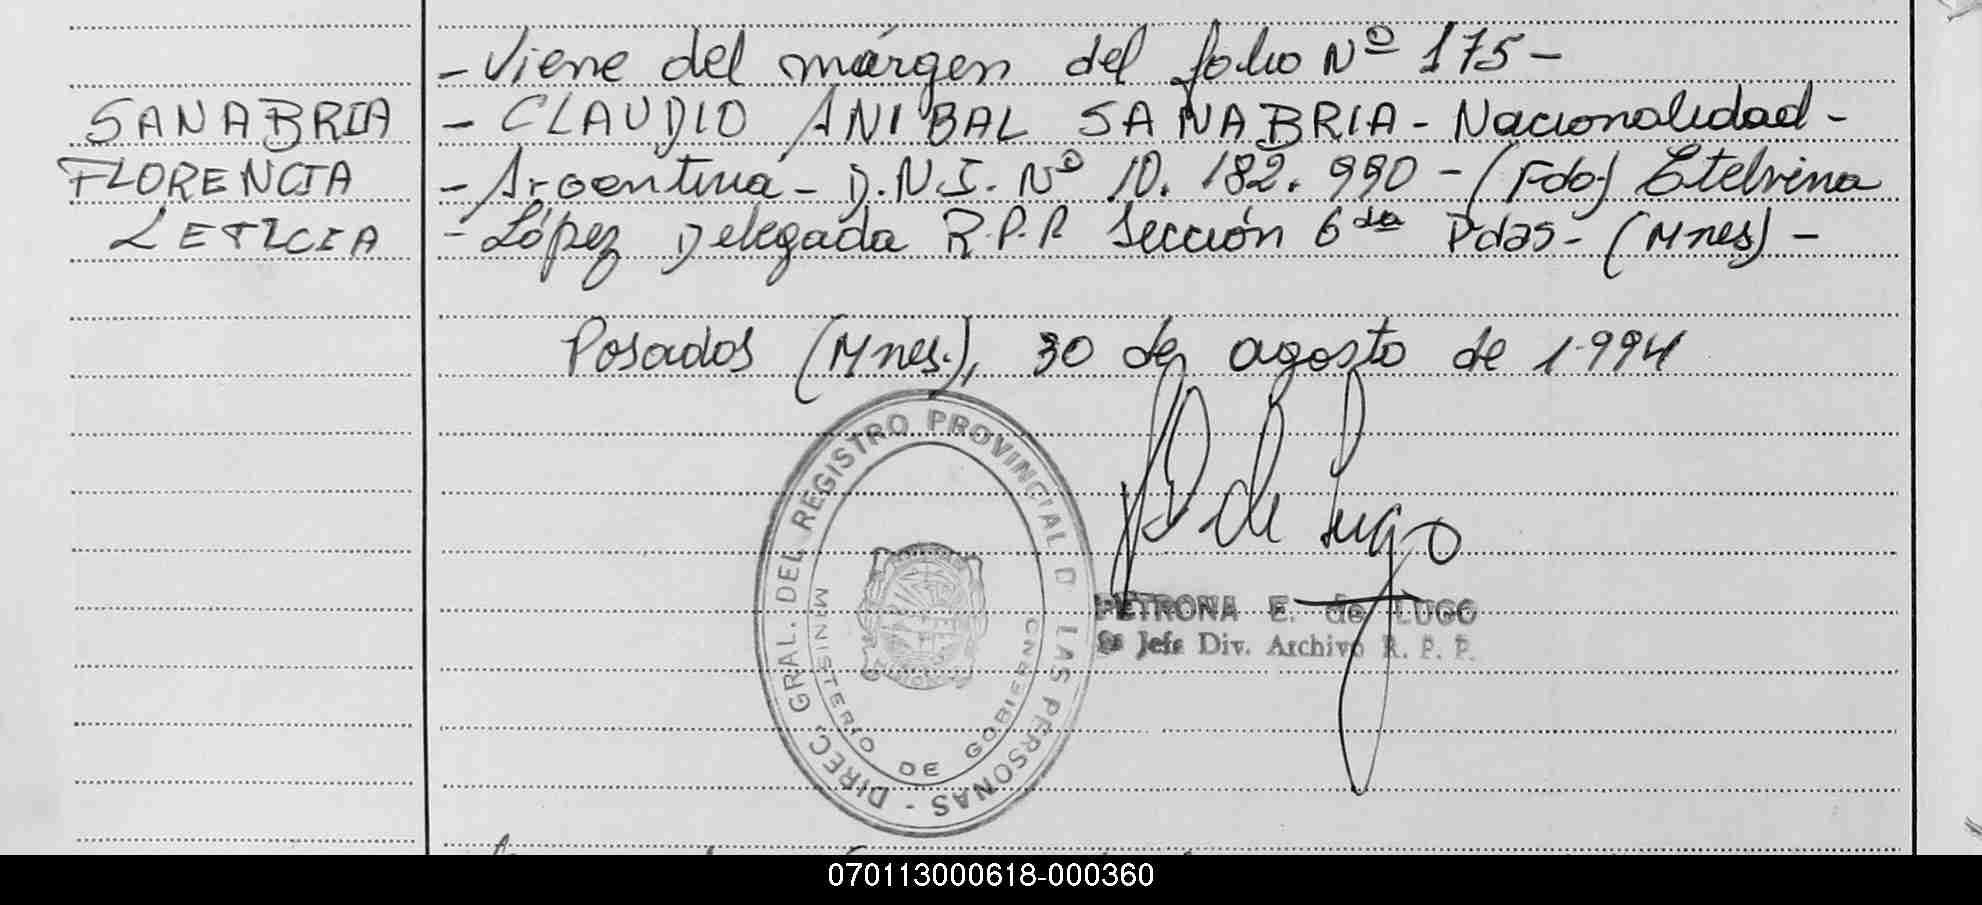 - Viene del márgen del folio Nº 175 -
SANABRIA
FLORENCIA
LETICIA
- CLAUDIO ANIBAL SANABRIA - Nacionalidad -
- Argentina - D.N.I. Nº 10.182.990 - (Fdo) Etelvina
- López Delegada R.P.P. Sección 6da Pdas - (Mnes) -
Posadas (Mnes.), 30 de agosto de 1.994
P de Lugo
DIREC. GRAL. DEL REGISTRO PROVINCIAL D LAS PERSONAS -
MINISTERIO DE GOBIERNO
PETRONA E. de LUGO
Jefe Div. Archivo R. P. P.
070113000618-000360